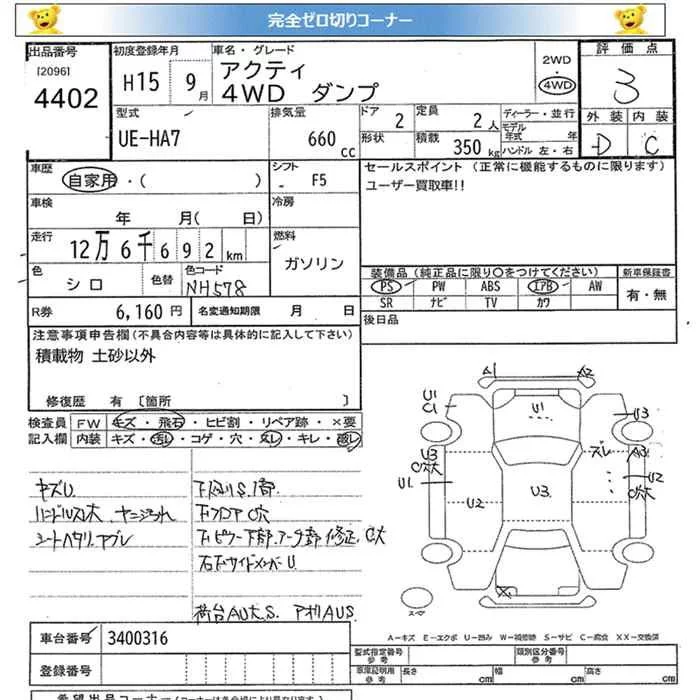 完全ゼロ切りコーナー
出品番号
[2096]
4402
初度登録年月
H15 9月
車名・グレード
アクティ
4WD ダンプ
2WD
4WD
評価点
3
外装 内装
D C
型式
UE-HA7
排気量
660 cc
ドア 2
形状
定員 2人
積載 350 kg
ディーラー・並行
モデル年式 年
ハンドル 左・右
車歴
自家用・( )
シフト
- F5
セールスポイント (正常に機能するものに限ります)
ユーザー買取車!!
車検
年 月( 日)
冷房
走行
12万6千692km
燃料
ガソリン
色
シロ
色替
色コード
NH578
装備品(純正品に限り○をつけてください)
新車保証書
PS PW ABS エアB AW
SR ナビ TV カワ
有・無
R券 6,160円
名変通知期限 月 日
後日品
注意事項申告欄(不具合内容等は具体的に記入して下さい)
積載物 土砂以外
修復歴 有 [箇所 ]
検査員
記入欄
FW キズ・飛石・ヒビ割・リペア跡・×要
内装 キズ・汚レ・コゲ・穴・スレ・キレ・破レ
キズU.
ハンドルスレ大 ヤニヨゴレ
シートヘタリ、ヤブレ
下フロアC穴
右下サイドメンバーU.
A1
A2
U1
C1
U1
U3
U3
C穴大
U1
U2
U3
ズレ
A3
U2
C穴大
スペア
A-キズ E-エクボ U-凹み W-補修跡 S-サビ C-腐食 XX-交換済
車台番号 3400316
登録番号
型式指定番号
参考
類別区分番号
参考
車庫証明用
参考
長さ
幅
高さ
希望出品コーナー